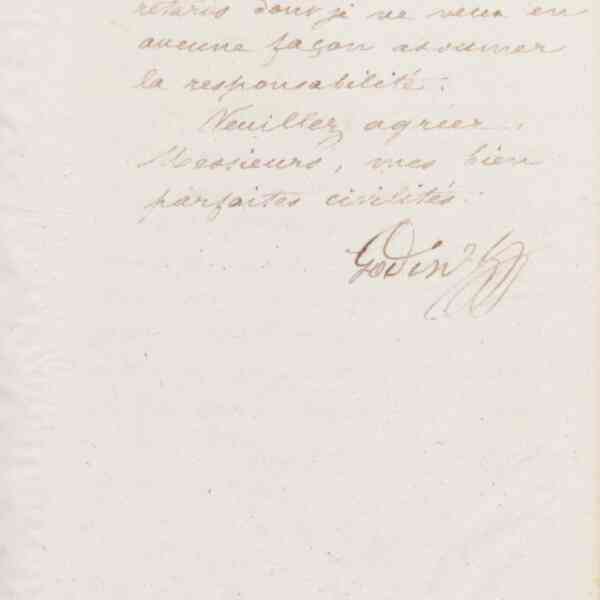 retards dont je ne veux en
aucune façon assumer
la responsabilité.
Veuillez agréer,
Messieurs, mes bien
parfaites civilités.
Godin